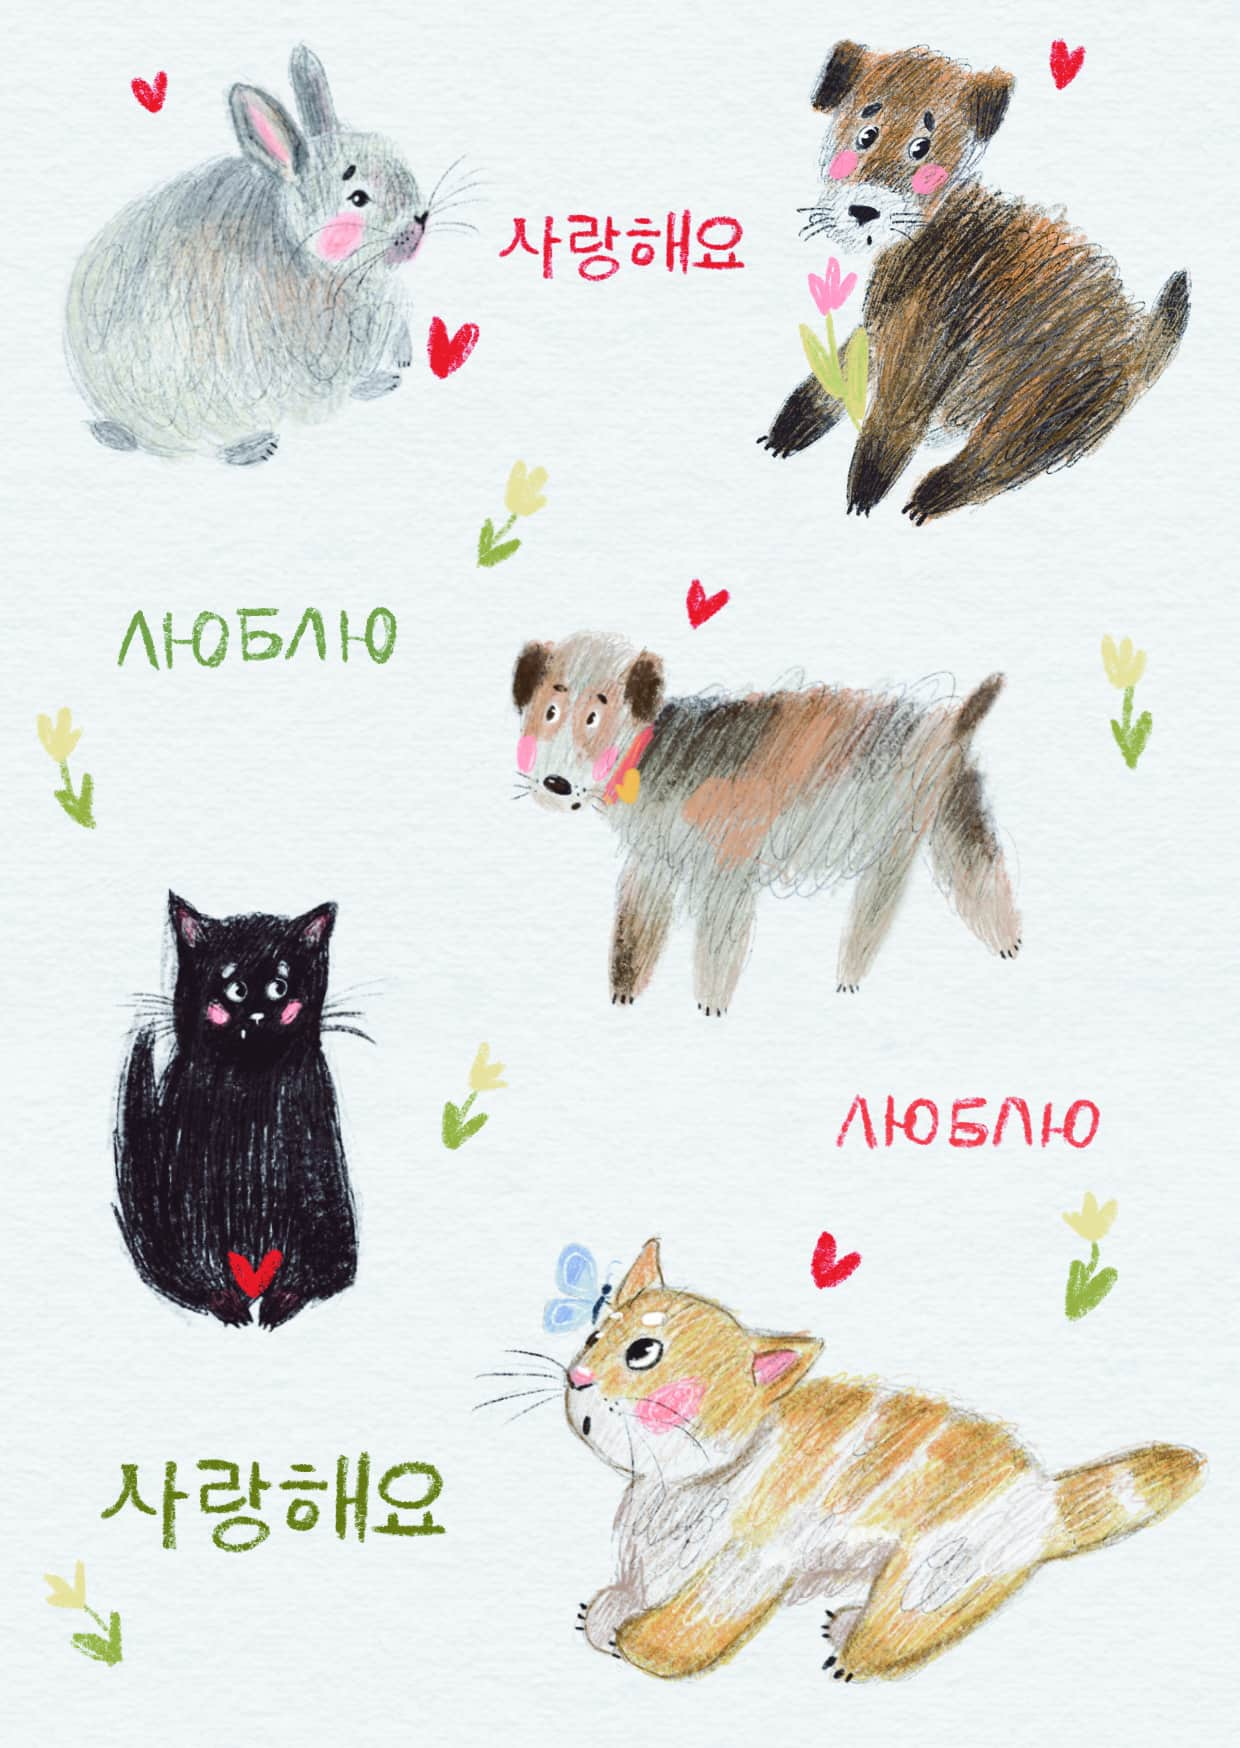 사랑해요
люблю
люблю
사랑해요